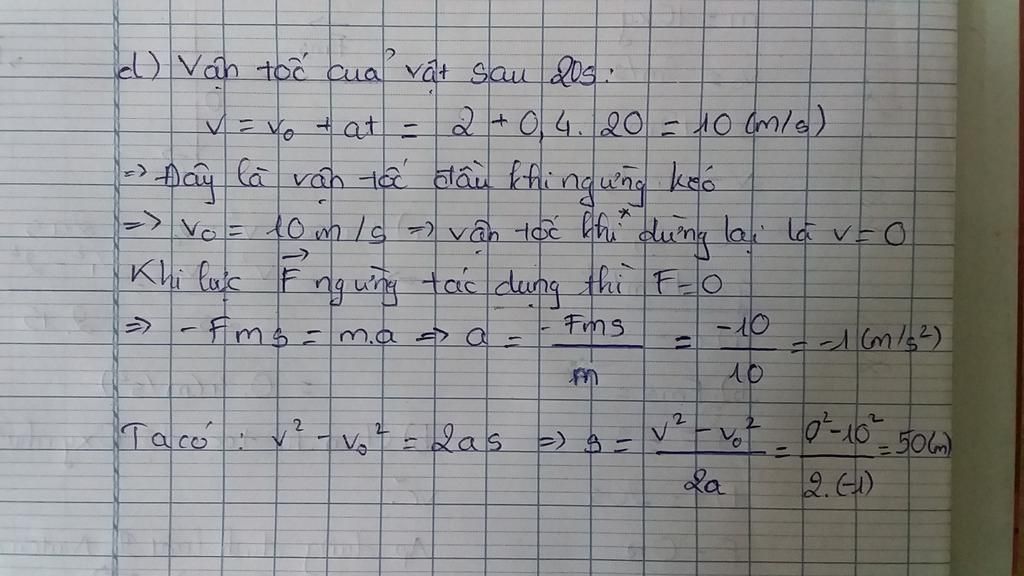 d) Vận tốc của vật sau 20s:
v = v₀ + at = 2 + 0,4. 20 = 10 (m/s)
=> Đây là vận tốc đầu khi ngừng kéo
=> v₀ = 10 m/s => vận tốc khi dừng lại là v = 0
Khi lực F⃗ ngừng tác dụng thì F = 0
=> - Fms = m.a => a = -Fms / m = -10 / 10 = -1 (m/s²)
Ta có: v² - v₀² = 2as => s = v² - v₀² / 2a = 0² - 10² / 2.(-1) = 50(m)